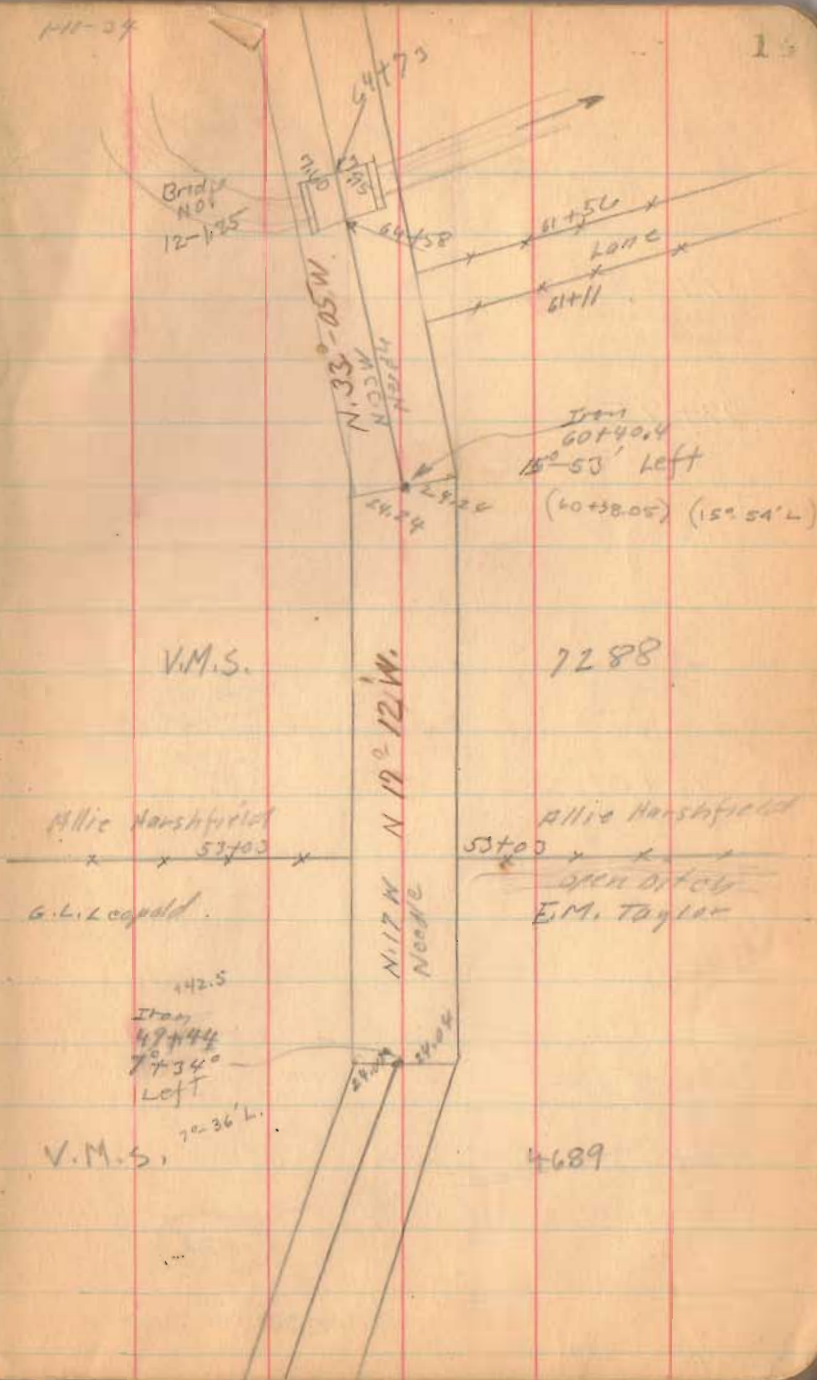 1-11-24
64+73
7.60 7.95
Bridge
No.
12-1.25
64+58
61+56
Lane
61+11
N.33°-05'W.
N33W
Iron
60+40.4
15°-53' Left
(60+38.05) (15°-54'L)
24.24 24.24
V.M.S. 7288
N 17° 12' W.
Allie Harshfield Allie Harshfield
53+03 53+03
open Ditch
G.L. Leopold. E.M. Taylor
N.17 W
Needle
+42.5
Iron
49+44
7°+34°
Left
24.04 24.04
7°-36'L.
V.M.S. 4689